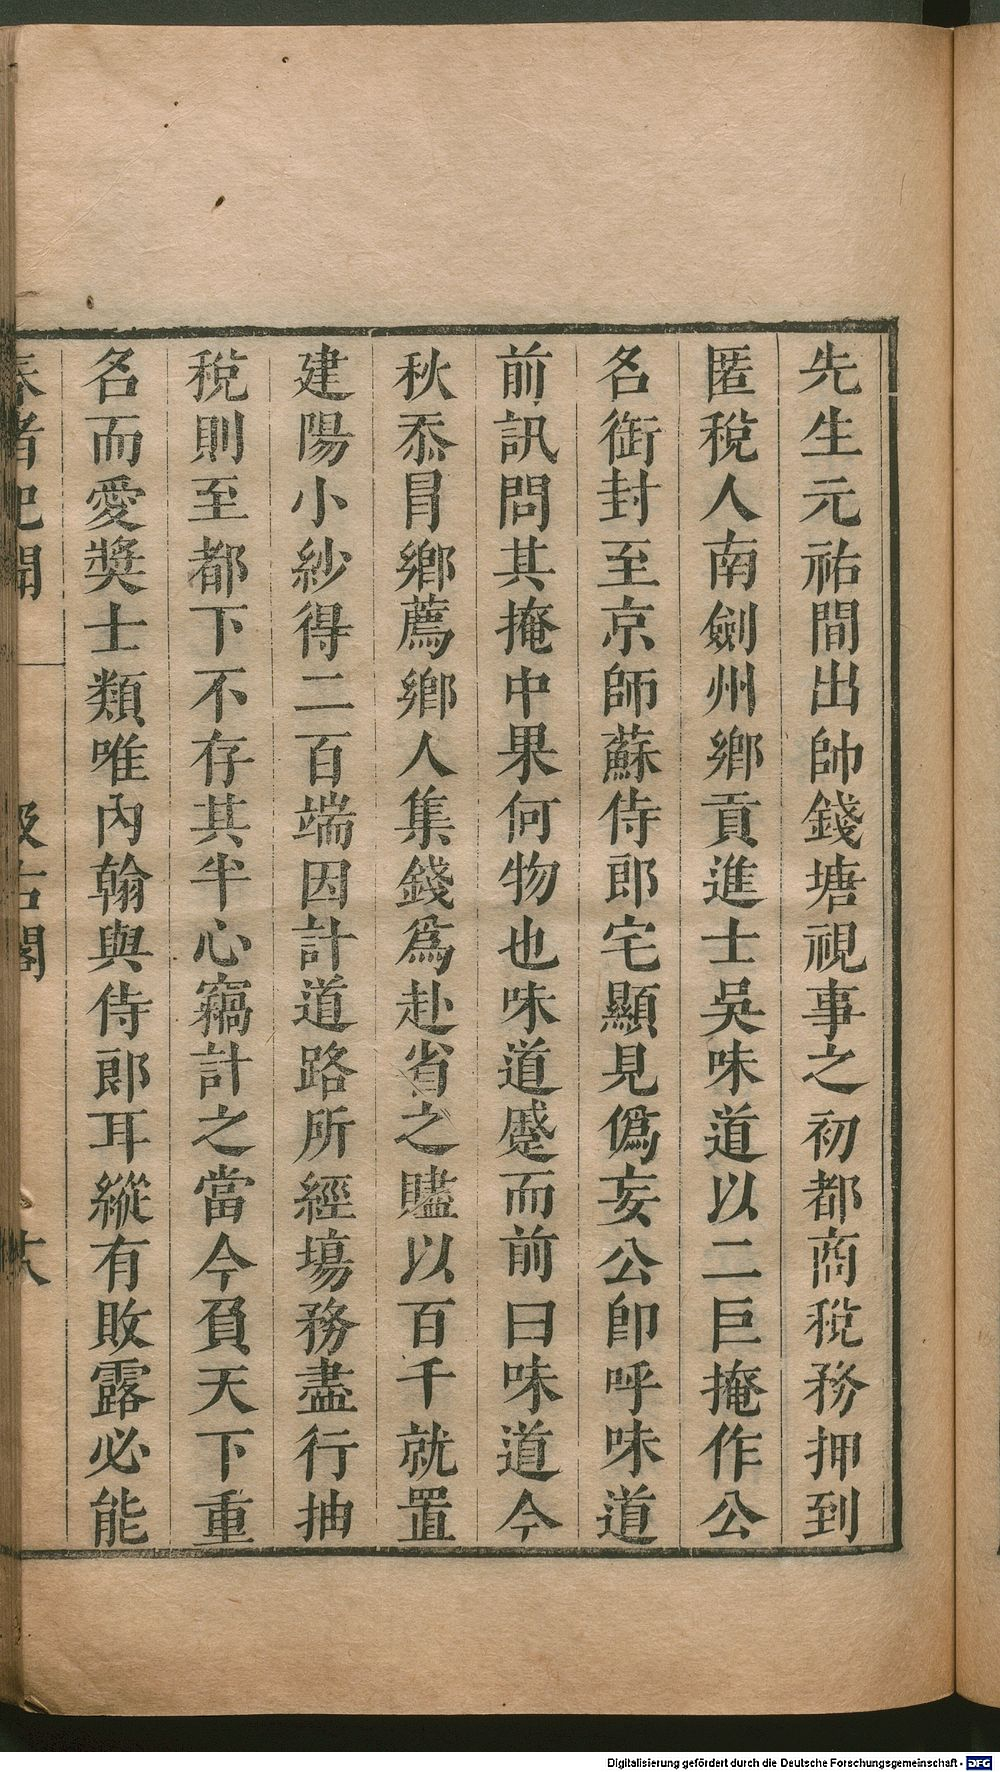 先生元祐間出帥錢塘視事之初都商稅務押到
匿稅人南劍州鄉貢進士吳味道以二巨掩作公
名銜封至京師蘇侍郎宅顯見僞妄公卽呼味道
前訊問其掩中果何物也味道蹙而前曰味道今
秋忝冒鄉薦鄉人集錢爲赴省之贐以百千就置
建陽小紗得二百端因計道路所經塲務盡行抽
稅則至都下不存其半心竊計之當今負天下重
名而愛獎士類唯內翰與侍郎耳縱有敗露必能
春渚紀聞
汲古閣
Digitalisierung gefördert durch die Deutsche Forschungsgemeinschaft - DFG